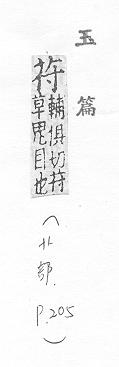 玉篇
苻
輔俱切苻
草鬼目也
(艹部. P.205)